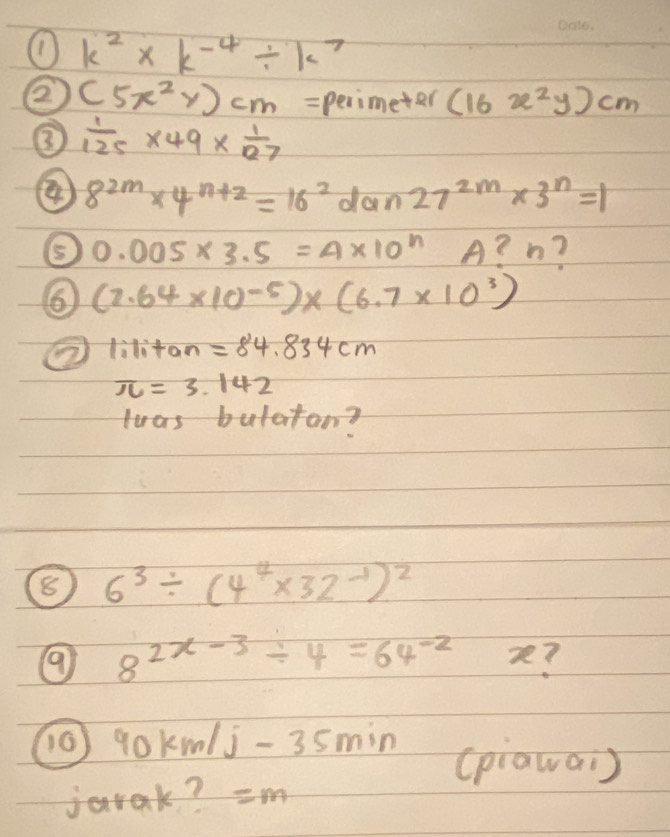 Date.
① k² × k⁻⁴ ÷ k⁷
② (5x²y) cm = perimeter (16 x²y) cm
③ 1/125 × 49 × 1/27
④ 8²ᵐ × 4ⁿ⁺² = 16² dan 27²ᵐ × 3ⁿ = 1
⑤ 0.005 × 3.5 = A × 10ⁿ A? n?
⑥ (2.64 × 10⁻⁵) × (6.7 × 10³)
⑦ lilitan = 84.834 cm
π = 3.142
luas bulatan?
⑧ 6³ ÷ (4⁴ × 32⁻¹)²
⑨ 8²ˣ⁻³ ÷ 4 = 64⁻² x?
⑩ 90 km/j - 35 min
(piawai)
jarak? = m